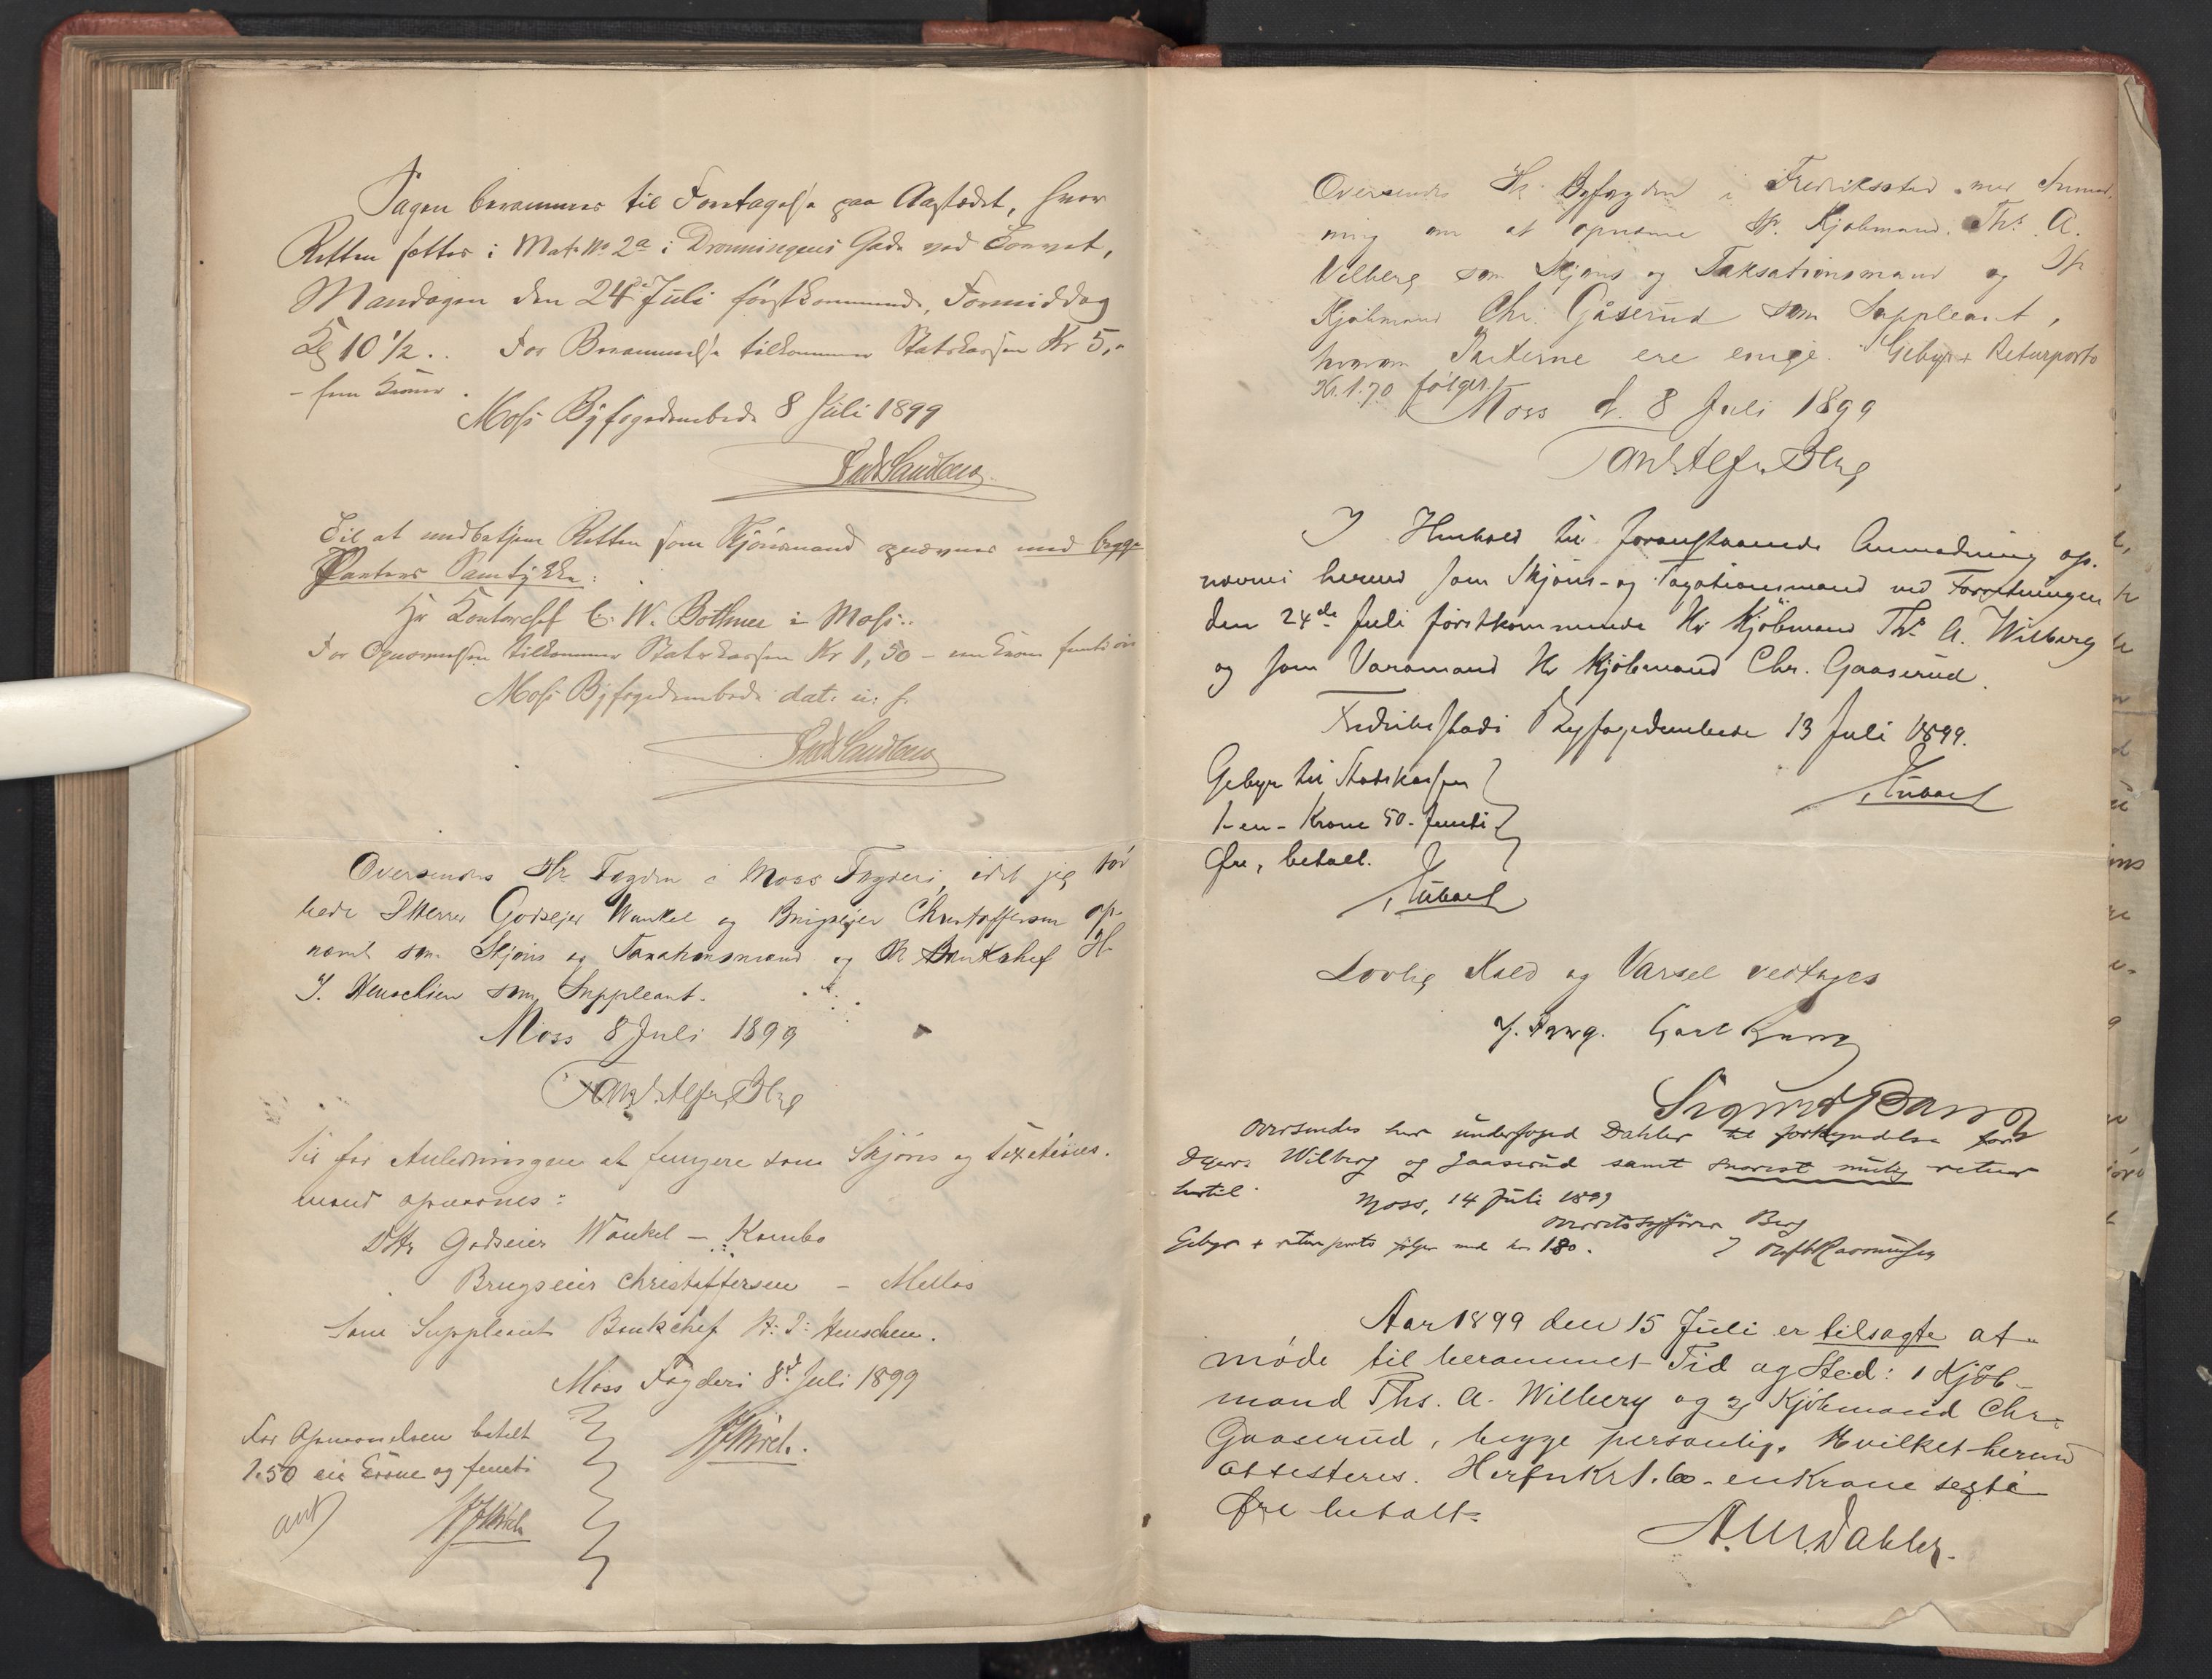 Sagen berammes til Foretagelse paa Aastedet, hvor
Retten sættes i Matr. No 2a i Dronningens Gade ved Torvet,
Mandagen den 24de Juli førstkommende, Formiddag
Kl 10 1/2. For Berammelse tilkommer Statskassen Kr 5,-
- fem Kroner.
Moss Byfogedembede 8 Juli 1899
Til at medbetjene Retten som Skjönsmand opnævnes med begge
Parters Samtykke:
Hr Kontorchef C. W. Bothner i Moss.
For Opnævnelsen tilkommer Statskassen Kr 1,50 - en Krone femti öre
Moss Byfogedembede dat: u: s.
Oversendes Hr. Fogden i Moss Fogderi, idet jeg tör
bede DHerrer Godsejer Wankel og Brugsejer Christoffersen op-
nævnt som Skjöns og Taxationsmænd og Hr Bankchef H.
J. Henschien som Suppleant.
Moss 8 Juli 1899
Til for Anledningen at fungere som Skjöns og Taxations-
mænd opnævnes:
DHr Godseier Wankel - Kambo
Brugseier Christoffersen - Mellös
Som Suppleant Bankchef H: J: Henschien.
Moss Fogderi 8d Juli 1899
For Opnævnelsen betalt
1.50 en Krone og femti
Oversendes Hr. Byfogden i Fredriksstad med Anmod-
ning om at opnævne Hr. Kjöbmand Ths. A.
Vilberg som Skjöns og Taksationsmand og Hr
Kjöbmand Chr. Gåserud som Suppleant,
hvorom Parterne ere enige. Gebyr + Returporto
Kr. 1.70 følger.
Moss d. 8 Juli 1899
I Henhold til foranstaaende Anmodning op-
nævnes herved som Skjöns- og Taxationsmand ved Forretningen
den 24de Juli förstkommende Hr Kjöbmand Ths. A. Wilberg
og som Varamand Hr Kjöbmand Chr. Gaaserud.
Fredriksstads Byfogedembede 13 Juli 1899.
Gebyr til Statskassen
1-en- Krone 50- femti
Øre, betalt.
Lovlig Kald og Varsel vedtages
Sigurd Bang
Oversendes herr underfoged Dahler til forkyndelse for
DHerr. Wilberg og Gaaserud samt snarest mulig retur
hertil.
Moss, 14 Juli 1899
Overretssagförer Berg
Gebyr + returporto fölger med kr 1.80.
Aar 1899 den 15 Juli er tilsagte at
møde til berammet Tid og Sted: 1 Kjöb-
mand Ths. A. Wilberg og 2) Kjöbmand Chr.
Gaaserud, begge personlig. Hvilket herved
attesteres. Herfor Kr 1.60 - en Krone segti
Øre betalt.
A. M. Dahler.